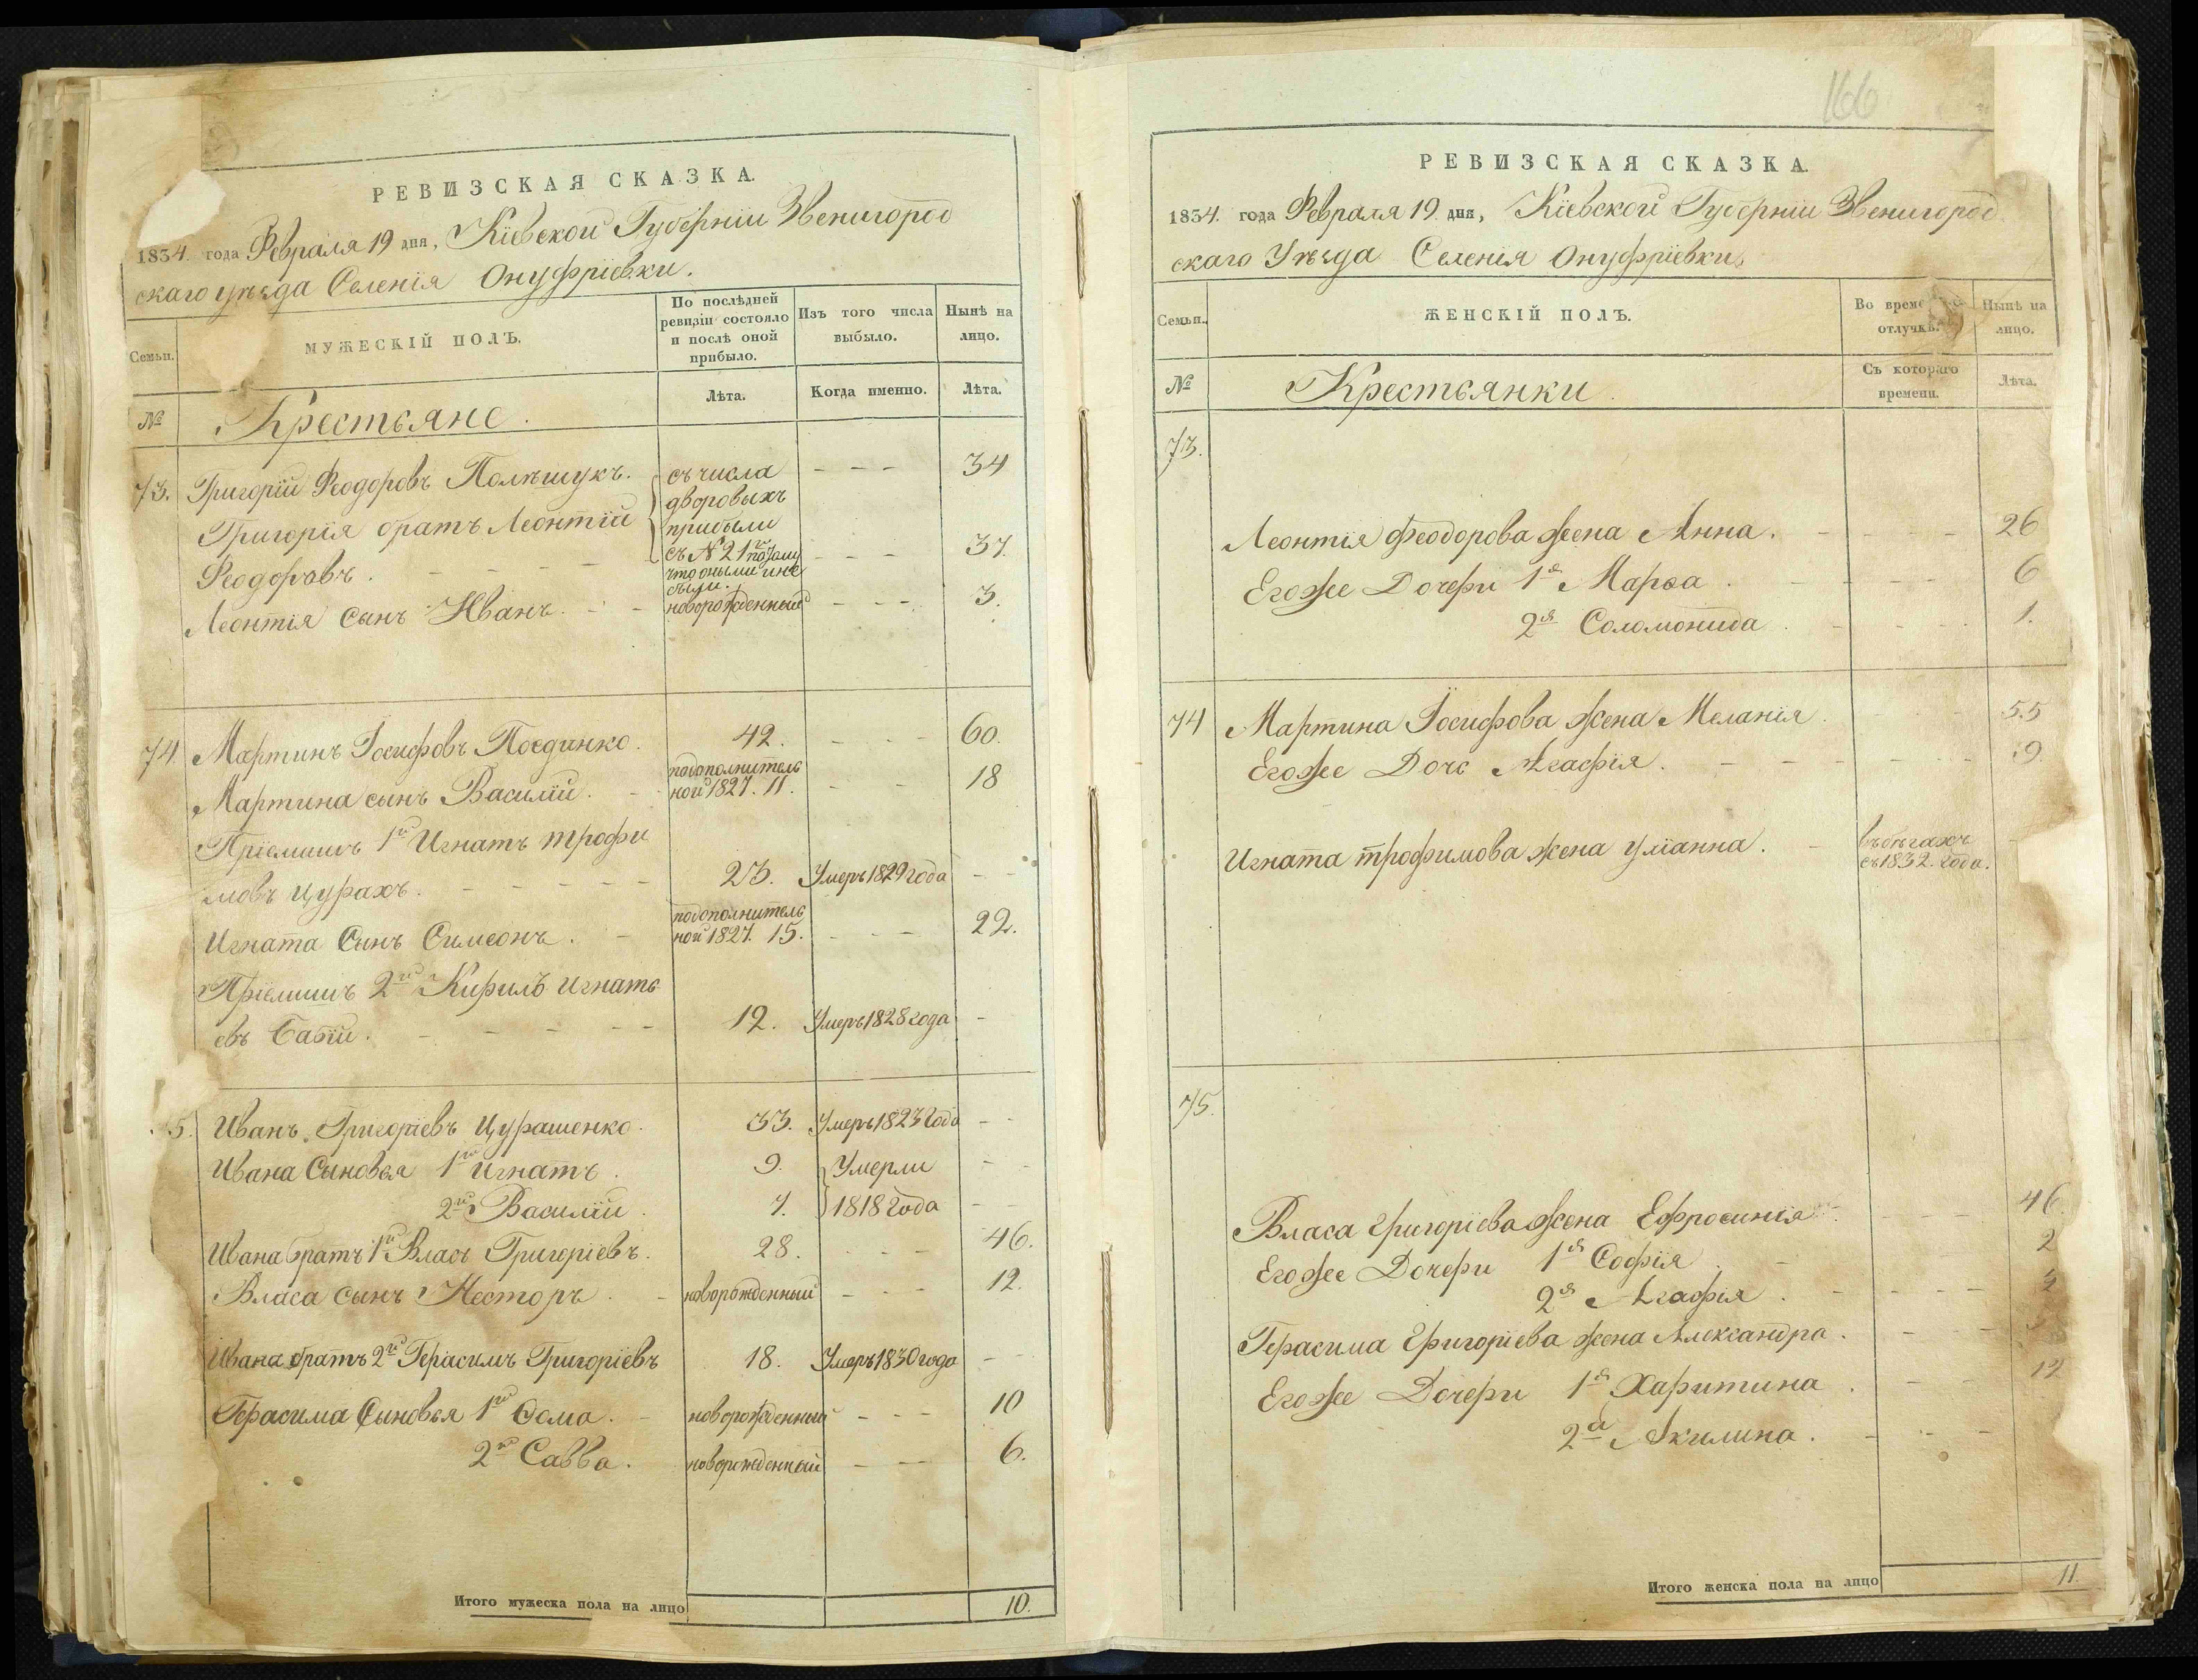 РЕВИЗСКАЯ СКАЗКА.
1834. года Февраля 19 дня, Кіевской Губерніи Звенигород
скаго уѣзда Селенія Онуфріевки.
Семьи.
МУЖЕСКІЙ ПОЛЪ.
По послѣдней ревизіи состояло и послѣ оной прибыло.
Изъ того числа выбыло.
Нынѣ на лицо.
№
Крестьяне.
Лѣта.
Когда именно.
Лѣта.
73. Григорій Феодоровъ Полѣщукъ. съ числа - - - 34
дворовыхъ
Григорія братъ Леонтій прибыли
Феодоровъ. - - - - съ № 21го потому - - - 37.
что оными и не
были.
Леонтія сынъ Иванъ. - - новорожденный - - - 3.
74 Мартинъ Іосифовъ Поединко. 42. - - - 60.
Мартина сынъ Василій. - подополнитель
ной 1827. 11. - - 18
Пріемышъ 1й Игнатъ трофи
мовъ Цурахъ. - - - - - 23. Умеръ 1829 года - -
Игната Сынъ Симеонъ. - подополнитель
ной 1827. 15. - - - 22.
Пріемышъ 2й Кирилъ Игнать
евъ Бабій. - - - - - 12. Умеръ 1828 года -
5. Иванъ Григоріевъ Цурашенко. 33. Умеръ 1823 Года - -
Ивана Сыновья 1й Игнатъ. 9. Умерли - -
2й Василій. 7. 1818 Года - -
Ивана братъ 1й Власъ Григоріевъ. 28. - - - 46.
Власа сынъ Несторъ. - новорожденный - - - 12.
Ивана братъ 2й Герасимъ Григоріевъ 18. Умеръ 1830 года - -
Герасима Сыновья 1й Ѳома. - новорожденный - - - 10
2й Савва. новорожденный - - - 6.
Итого мужеска пола на лицо 10.
166
РЕВИЗСКАЯ СКАЗКА.
1834. года Февраля 19 дня, Кіевской Губерніи Звенигород
скаго Уѣзда Селенія Онуфріевки
Семьи.
ЖЕНСКІЙ ПОЛЪ.
Во врем отлучкѣ.
Нынѣ на лицо.
№
Крестьянки.
Съ котораго времени.
Лѣта.
73.
Леонтія Феодорова жена Анна. - - - - 26
Егоже Дочери 1я Марѳа. - - - - 6
2я Соломонида. - - - - 1.
74 Мартина Іосифова жена Меланія. 55
Егоже Дочь Агафія. - - - - - - 9
Игната трофимова жена Уліанна. - въ бѣгахъ
съ 1832. года. -
75.
Власа Григоріева жена Ефросинія. - - - 46
Егоже Дочери 1я Софія. - 2
2я Агафія. - - - -
Герасима Григоріева жена Александра. - - -
Егоже Дочери 1я Харитина. - - 12
2я Акилина. - - -
Итого женска пола на лицо 11.